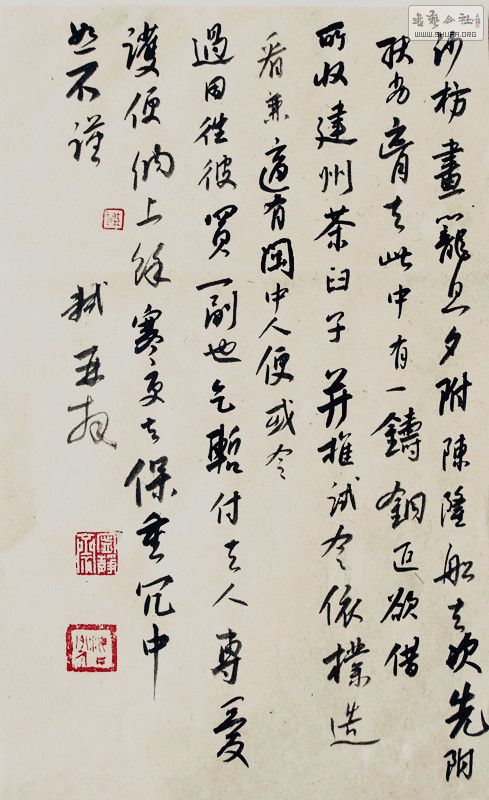 沙枋畫籠旦夕附陳隆船去次先附
扶劣膏去此中有一鑄銅匠欲借
所收建州茶臼子并椎試令依樣造
看兼適有閩中人便或令
過因往彼買一副也乞暫付去人專愛
護便納上餘寒更乞保重冗中
恕不謹 軾再拜
書藝公社
WWW.SHUFA.ORG